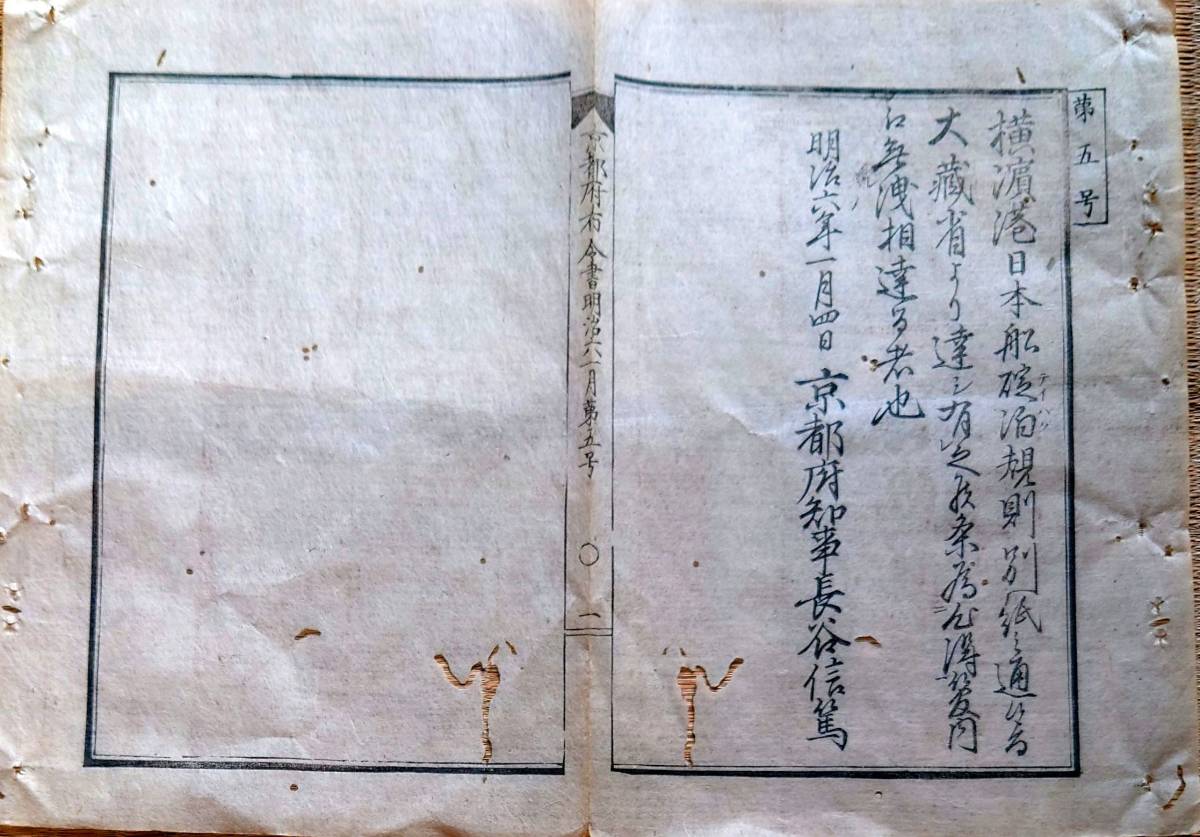 第五号
横濱港日本船碇泊規則別紙之通
テイハク
大藏省より達シ有之候条為心得管内
江無洩相達る者也
明治六年一月四日 京都府知事長谷信篤
京都府布令書明治六一月第五号 〇 一